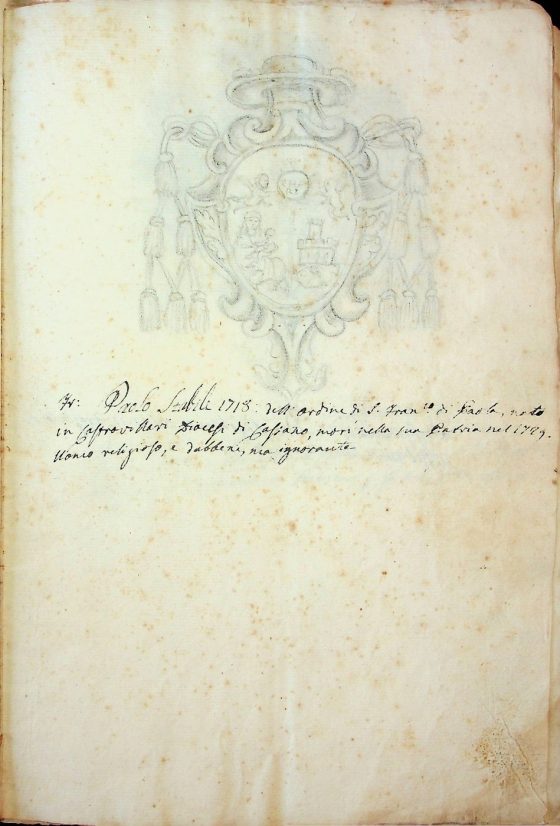 Fr: Paolo Stabile 1718: dell'ordine di S. Fran.co di Paola, nato
in Castrovilleri Diocesi di Cassano, morì nella sua Patria nel 1729.
Uomo religioso, e dabbene, ma ignorante